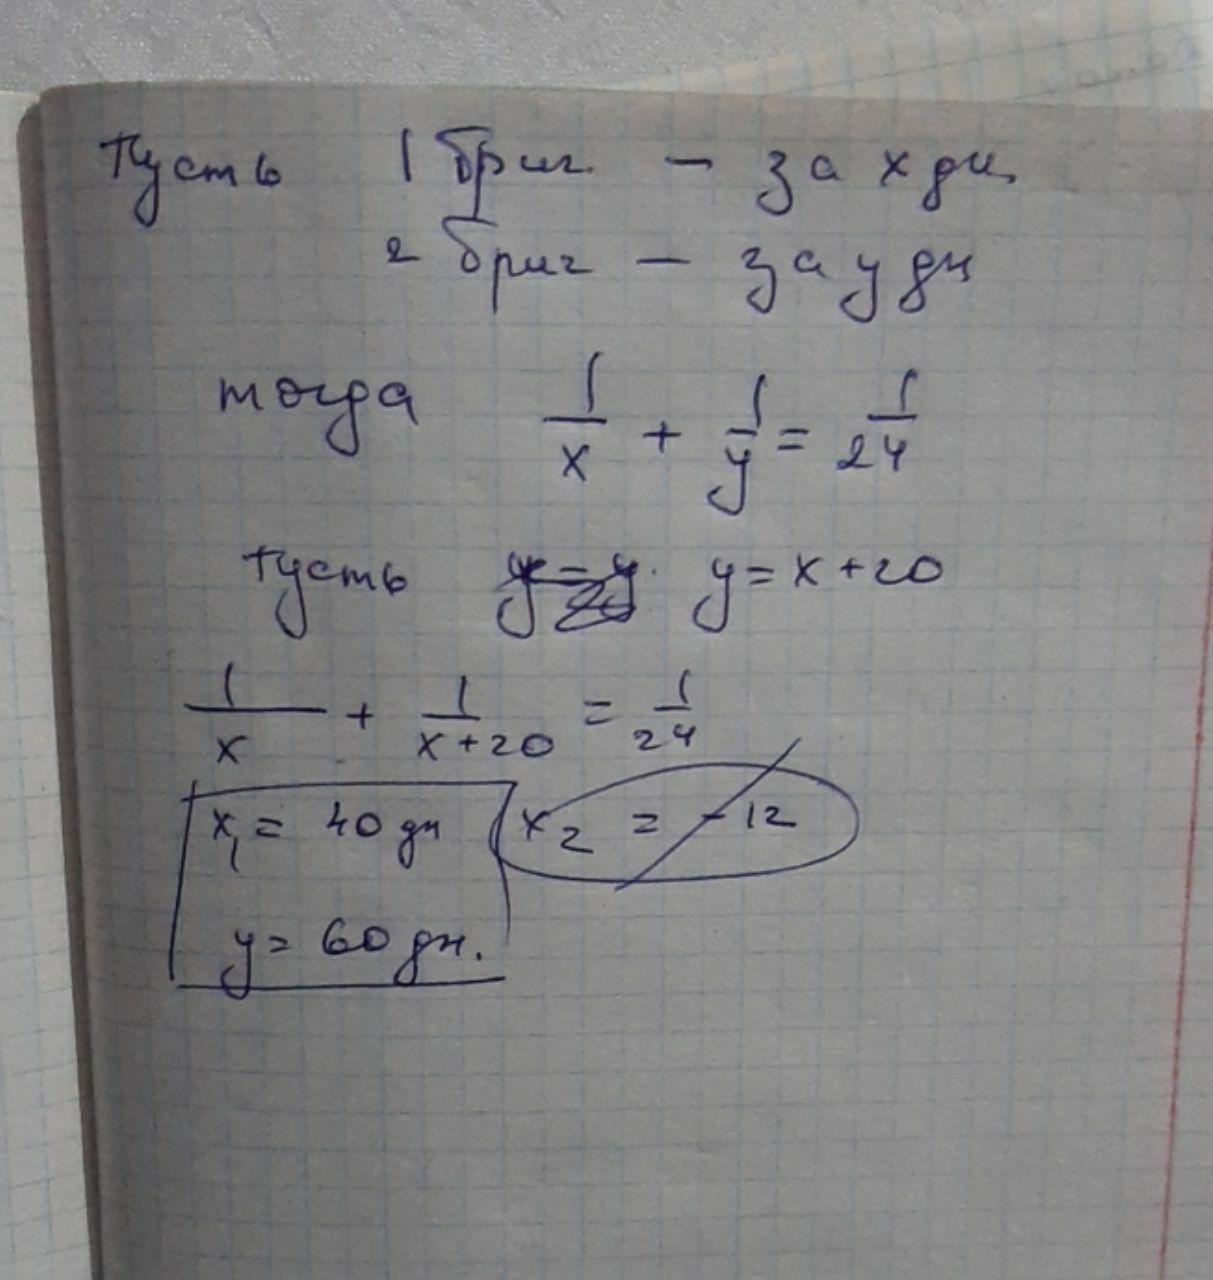 Пусть 1 бриг. - за x дн.
2 бриг - за y дн
тогда 1/x + 1/y = 1/24
Пусть y = x + 20
1/x + 1/(x+20) = 1/24
x₁ = 40 дн x₂ = -12
y = 60 дн.